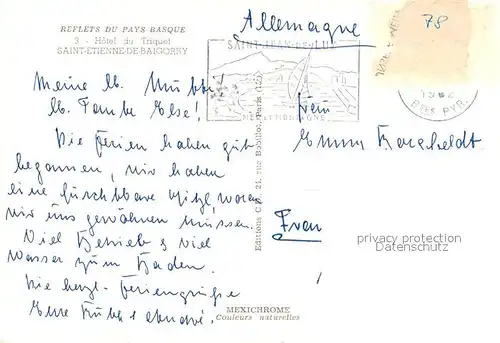 REFLETS DU PAYS BASQUE
3 - Hôtel du Triquet
SAINT-ETIENNE-DE-BAIGORRY
Allemagne
78
SAINT-JEAN-DE-LUZ
MER ET MONTAGNE
Bses PYR.
Meine lb.
lb. Tante Else!
Die Ferien haben gut
begonnen, wir haben
eine furchtbare Hitze, woran
wir uns gewöhnen müssen.
Viel Betrieb & viel
Wasser zum Baden.
Die herzl. Feriengrüße
Eure
Frau
Emma
Editions C 21, rue Paris (12
privacy protection
Datenschutz
MEXICHROME
Couleurs naturelles